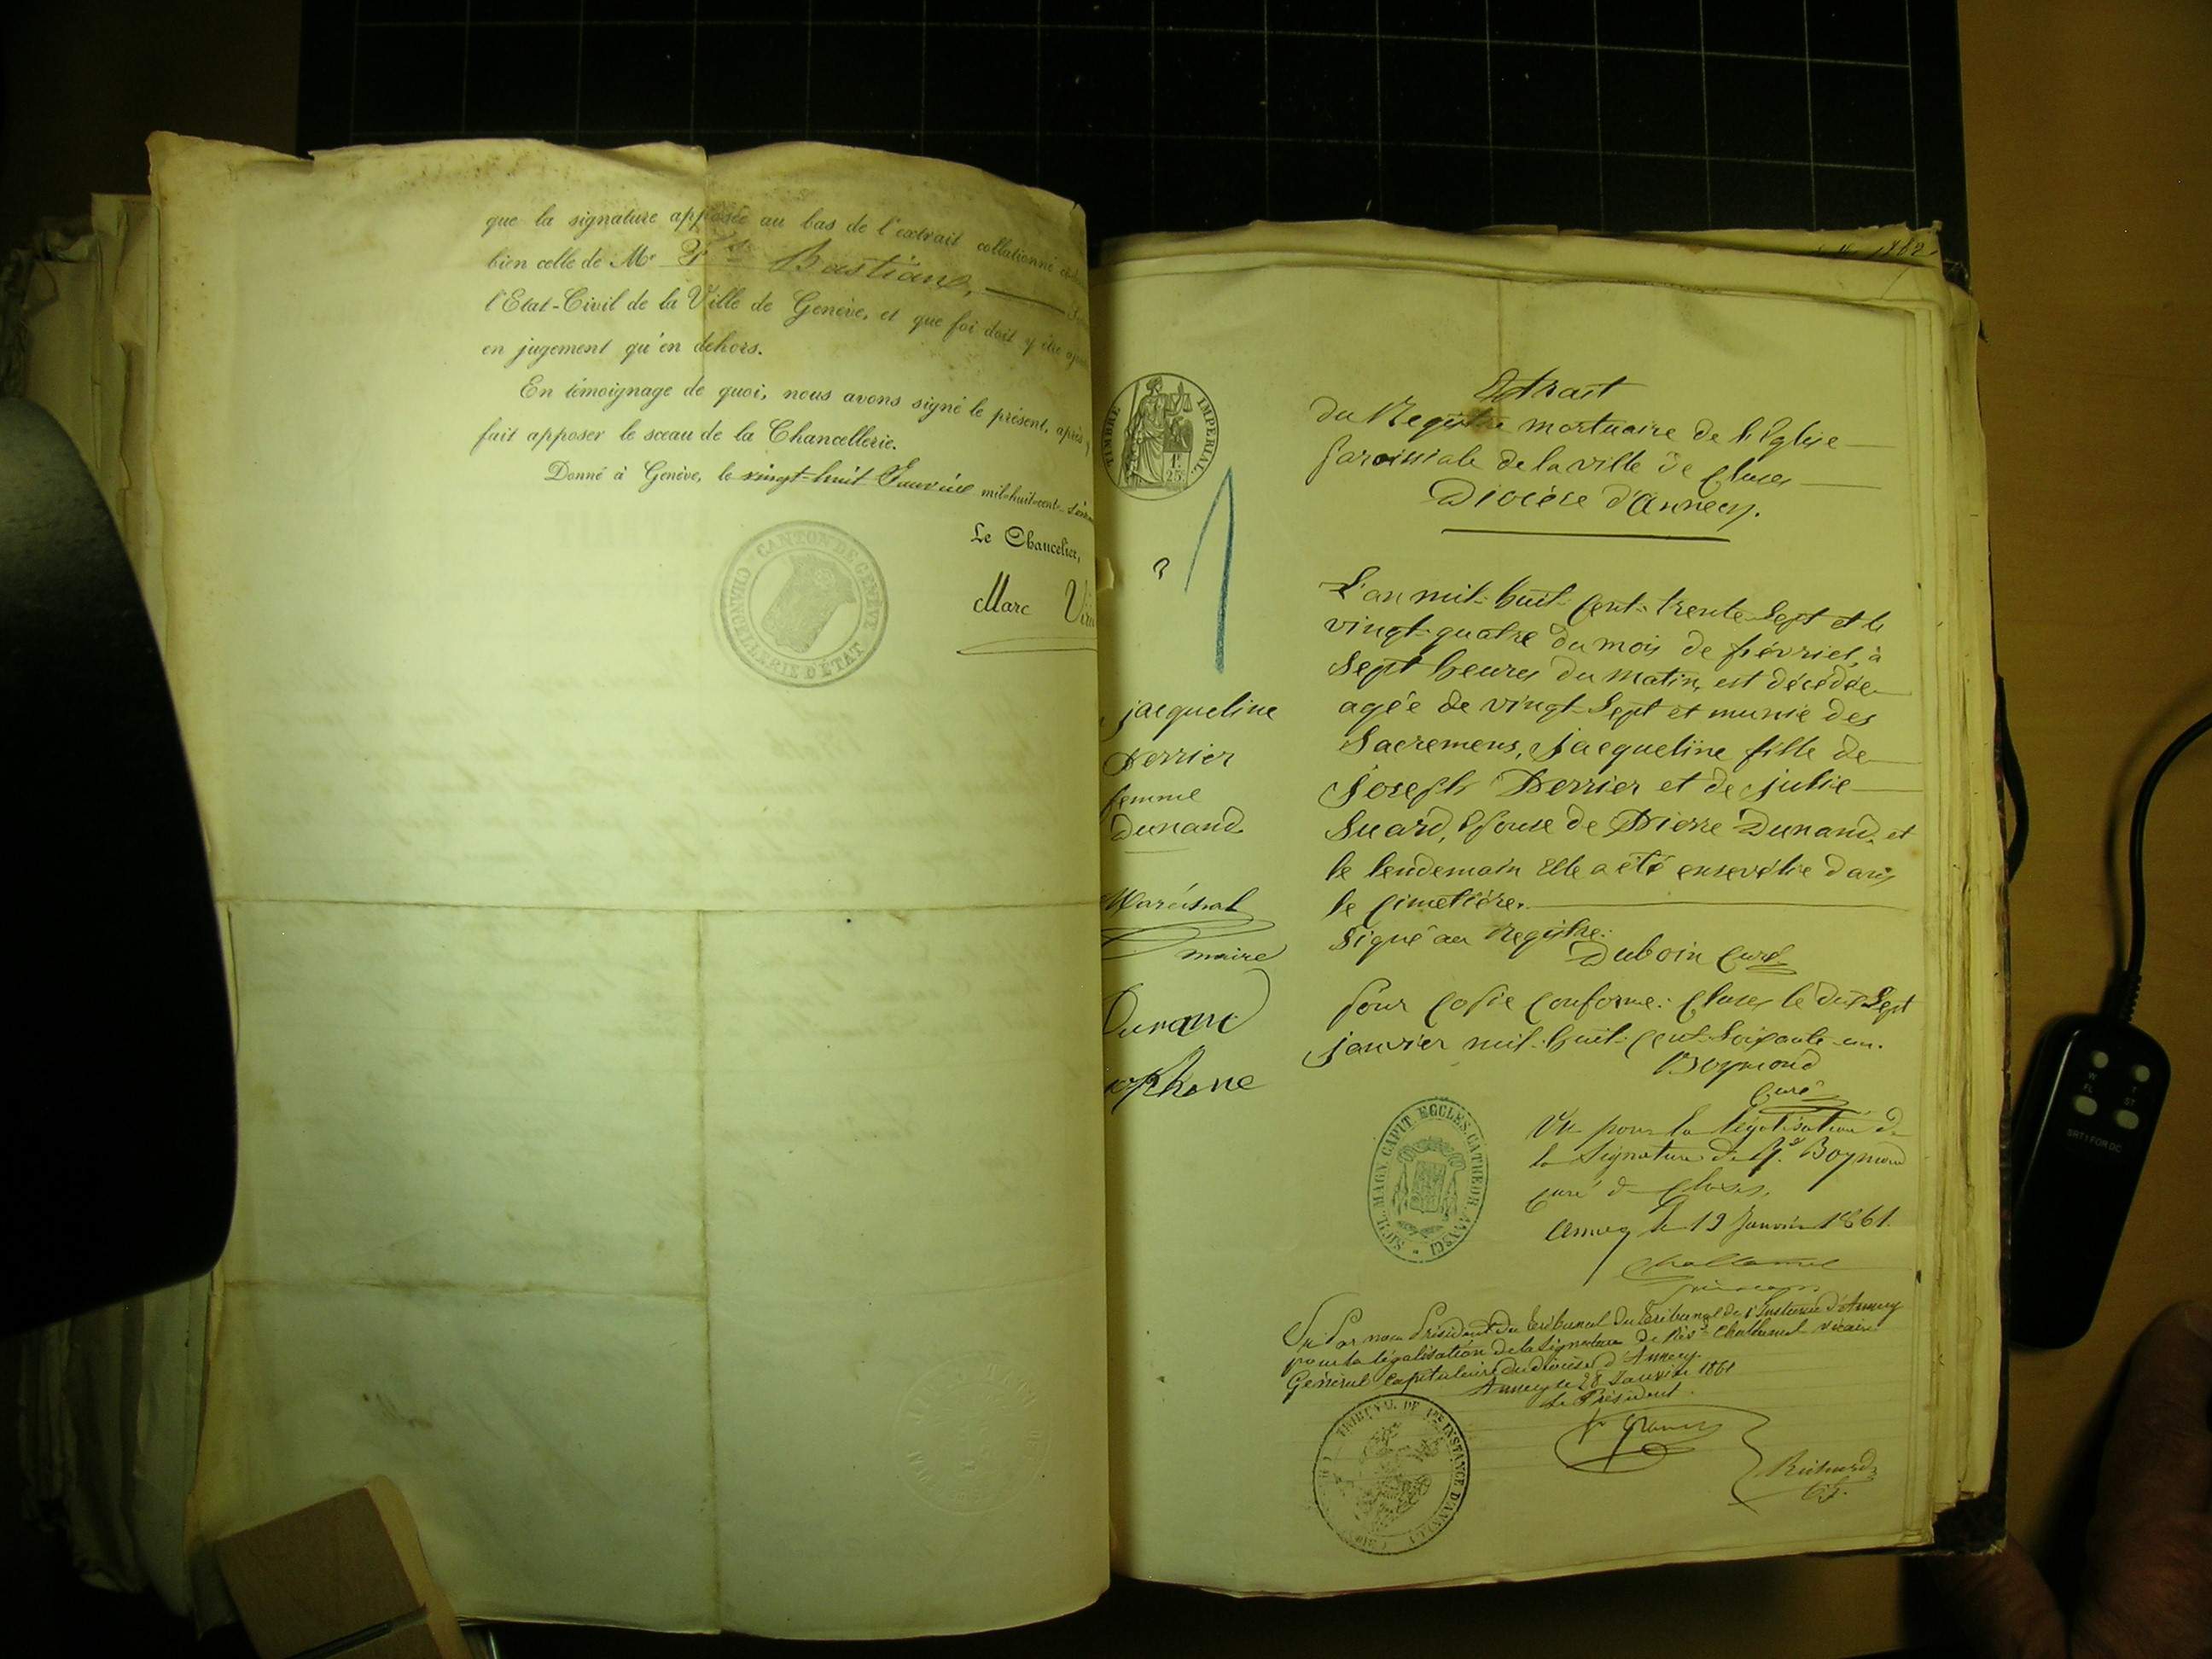 que la signature apposée au bas de l'extrait collationné
bien celle de Mr Bastian,
l'Etat-Civil de la Ville de Genève, et que foi doit y être
en jugement qu'en dehors.
En témoignage de quoi, nous avons signé le présent, après
fait apposer le sceau de la Chancellerie.
Donné à Genève, le vingt-huit Janvier mil-huit-cent-
Le Chancelier,
Marc
CANTON DE GENÈVE
CHANCELLERIE D'ÉTAT
1862
TIMBRE IMPÉRIAL
1F
25C
1
Extrait
du Registre mortuaire de l'Eglise
paroissiale de la ville de Cluses
Diocèse d'Annecy.
L'an mil-huit-cent-trente-sept et le
vingt-quatre du mois de février, à
sept heures du matin, est décédée
agée de vingt-sept et munie des
Sacremens, jacqueline fille de
Joseph Perrier et de julie
Suard, Epouse de Pierre Dunand, et
le lendemain Elle a été ensevelie dans
le cimetière.
Signé au registre:
Duboin Curé
jacqueline
Perrier
femme
Dunand
Maréchal
maire
Dunand
Pour copie conforme: Cluses le dix-sept
janvier mil-huit-cent-soixante-un.
Boymond
Curé
SIGIL. MAGN. CAPIT. ECCLES. CATHEDR. ANNSCI
Vu pour la légalisation de
la signature de Rd Boymond
curé de Cluses,
Annecy le 19 Janvier 1861.
Challamel
Vu Par nous Président du tribunal du tribunal de 1e Instance d'Annecy
pour la légalisation de la signature de Révd Challamel vicaire
Général Capitulaire du diocèse d'Annecy.
Annecy le 28 Janvier 1861
Le Président
TRIBUNAL DE 1RE INSTANCE D'ANNECY
W
T
FL
ST